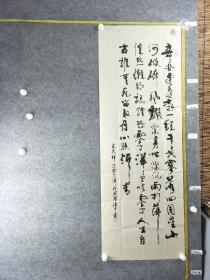 辛苦遭逢起一經干戈寥落四周星山
河破碎風飄絮身世浮沉雨打萍
惶恐灘頭說惶恐零丁洋里嘆零丁人生自
古誰無死留取丹心照汗青
文天祥過零丁洋